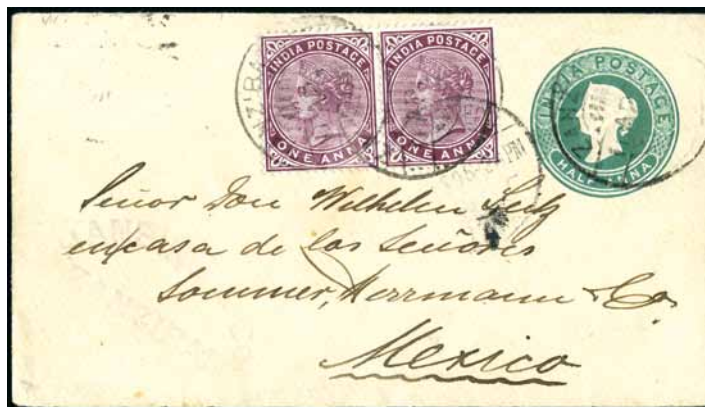 INDIA POSTAGE INDIA POSTAGE INDIA POSTAGE
ONE ANNA ONE ANNA HALF ANNA
Señor Don Wilhelm
en casa de los Señores
Sommer, Herrmann & Co.
Mexico